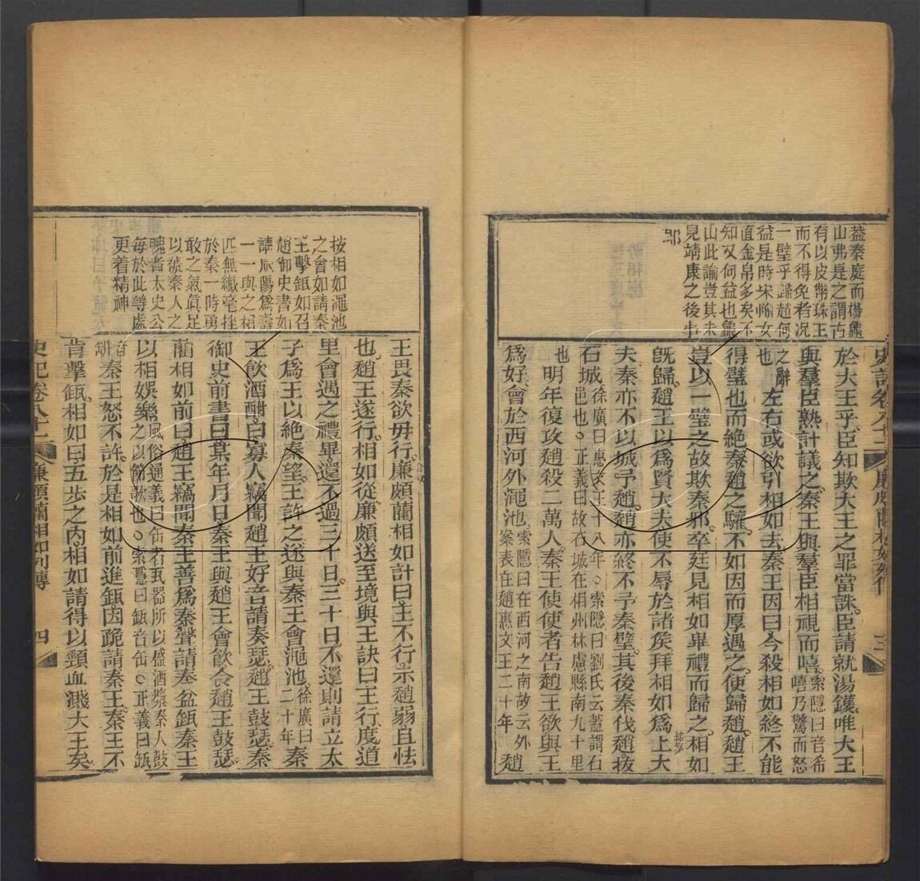 蓋秦庭而揚塵
山弗是之謂古
有以皮幣珠玉
而不得免者况
一璧乎歸趙何
益是時宋輸女
直金帛多矣不
知又何益也龜
山此論豈其未
見靖康之後事
耶
於大王乎臣知欺大王之罪當誅臣請就湯鑊唯大王
與羣臣熟計議之秦王與羣臣相視而嘻索隱曰音希嘻乃驚而怒
之辭也左右或欲引相如去秦王因曰今殺相如終不能
得璧也而絕秦趙之驩不如因而厚遇之使歸趙趙王
豈以一璧之故欺秦邪卒廷見相如畢禮而歸之相如
既歸趙王以爲賢大夫使不辱於諸矦拜相如爲上大
夫秦亦不以城予趙趙亦終不予秦璧其後秦伐趙拔
石城徐廣曰惠文王十八年○索隱曰劉氏云蓋謂石
城邑也○正義曰故石城在相州林慮縣南九十里
也明年復攻趙殺二萬人秦王使使者告趙王欲與王
爲好會於西河外澠池索隱曰在西河之南故云外案表在趙惠文王二十年趙
史記卷八十一 廉頗藺相如列傳 三
按相如澠池
之會如請秦
王擊缻如召
趙御史書如
請咸陽爲壽
一一與之相
匹無纖毫挫
於秦一時勇
敢之氣眞足
以褫秦人之
魄者太史公
每於此等處
更着精神
王畏秦欲毋行廉頗藺相如計曰王不行示趙弱且怯
也趙王遂行相如從廉頗送至境與王訣曰王行度道
里會遇之禮畢還不過三十日三十日不還則請立太
子爲王以絕秦望王許之遂與秦王會澠池徐廣曰二十年秦
王飲酒酣曰寡人竊聞趙王好音請奏瑟趙王鼓瑟秦
御史前書曰某年月日秦王與趙王會飲令趙王鼓瑟
藺相如前曰趙王竊聞秦王善爲秦聲請奏盆缻秦王
以相娛樂風俗通義曰缶者瓦器所以盛酒漿秦人鼓
之以節歌也○索隱曰缻音缶○正義曰缻
音缾秦王怒不許於是相如前進缻因跪請秦王秦王不
肯擊缻相如曰五步之內相如請得以頸血濺大王矣
史記卷八十一 廉頗藺相如列傳 四